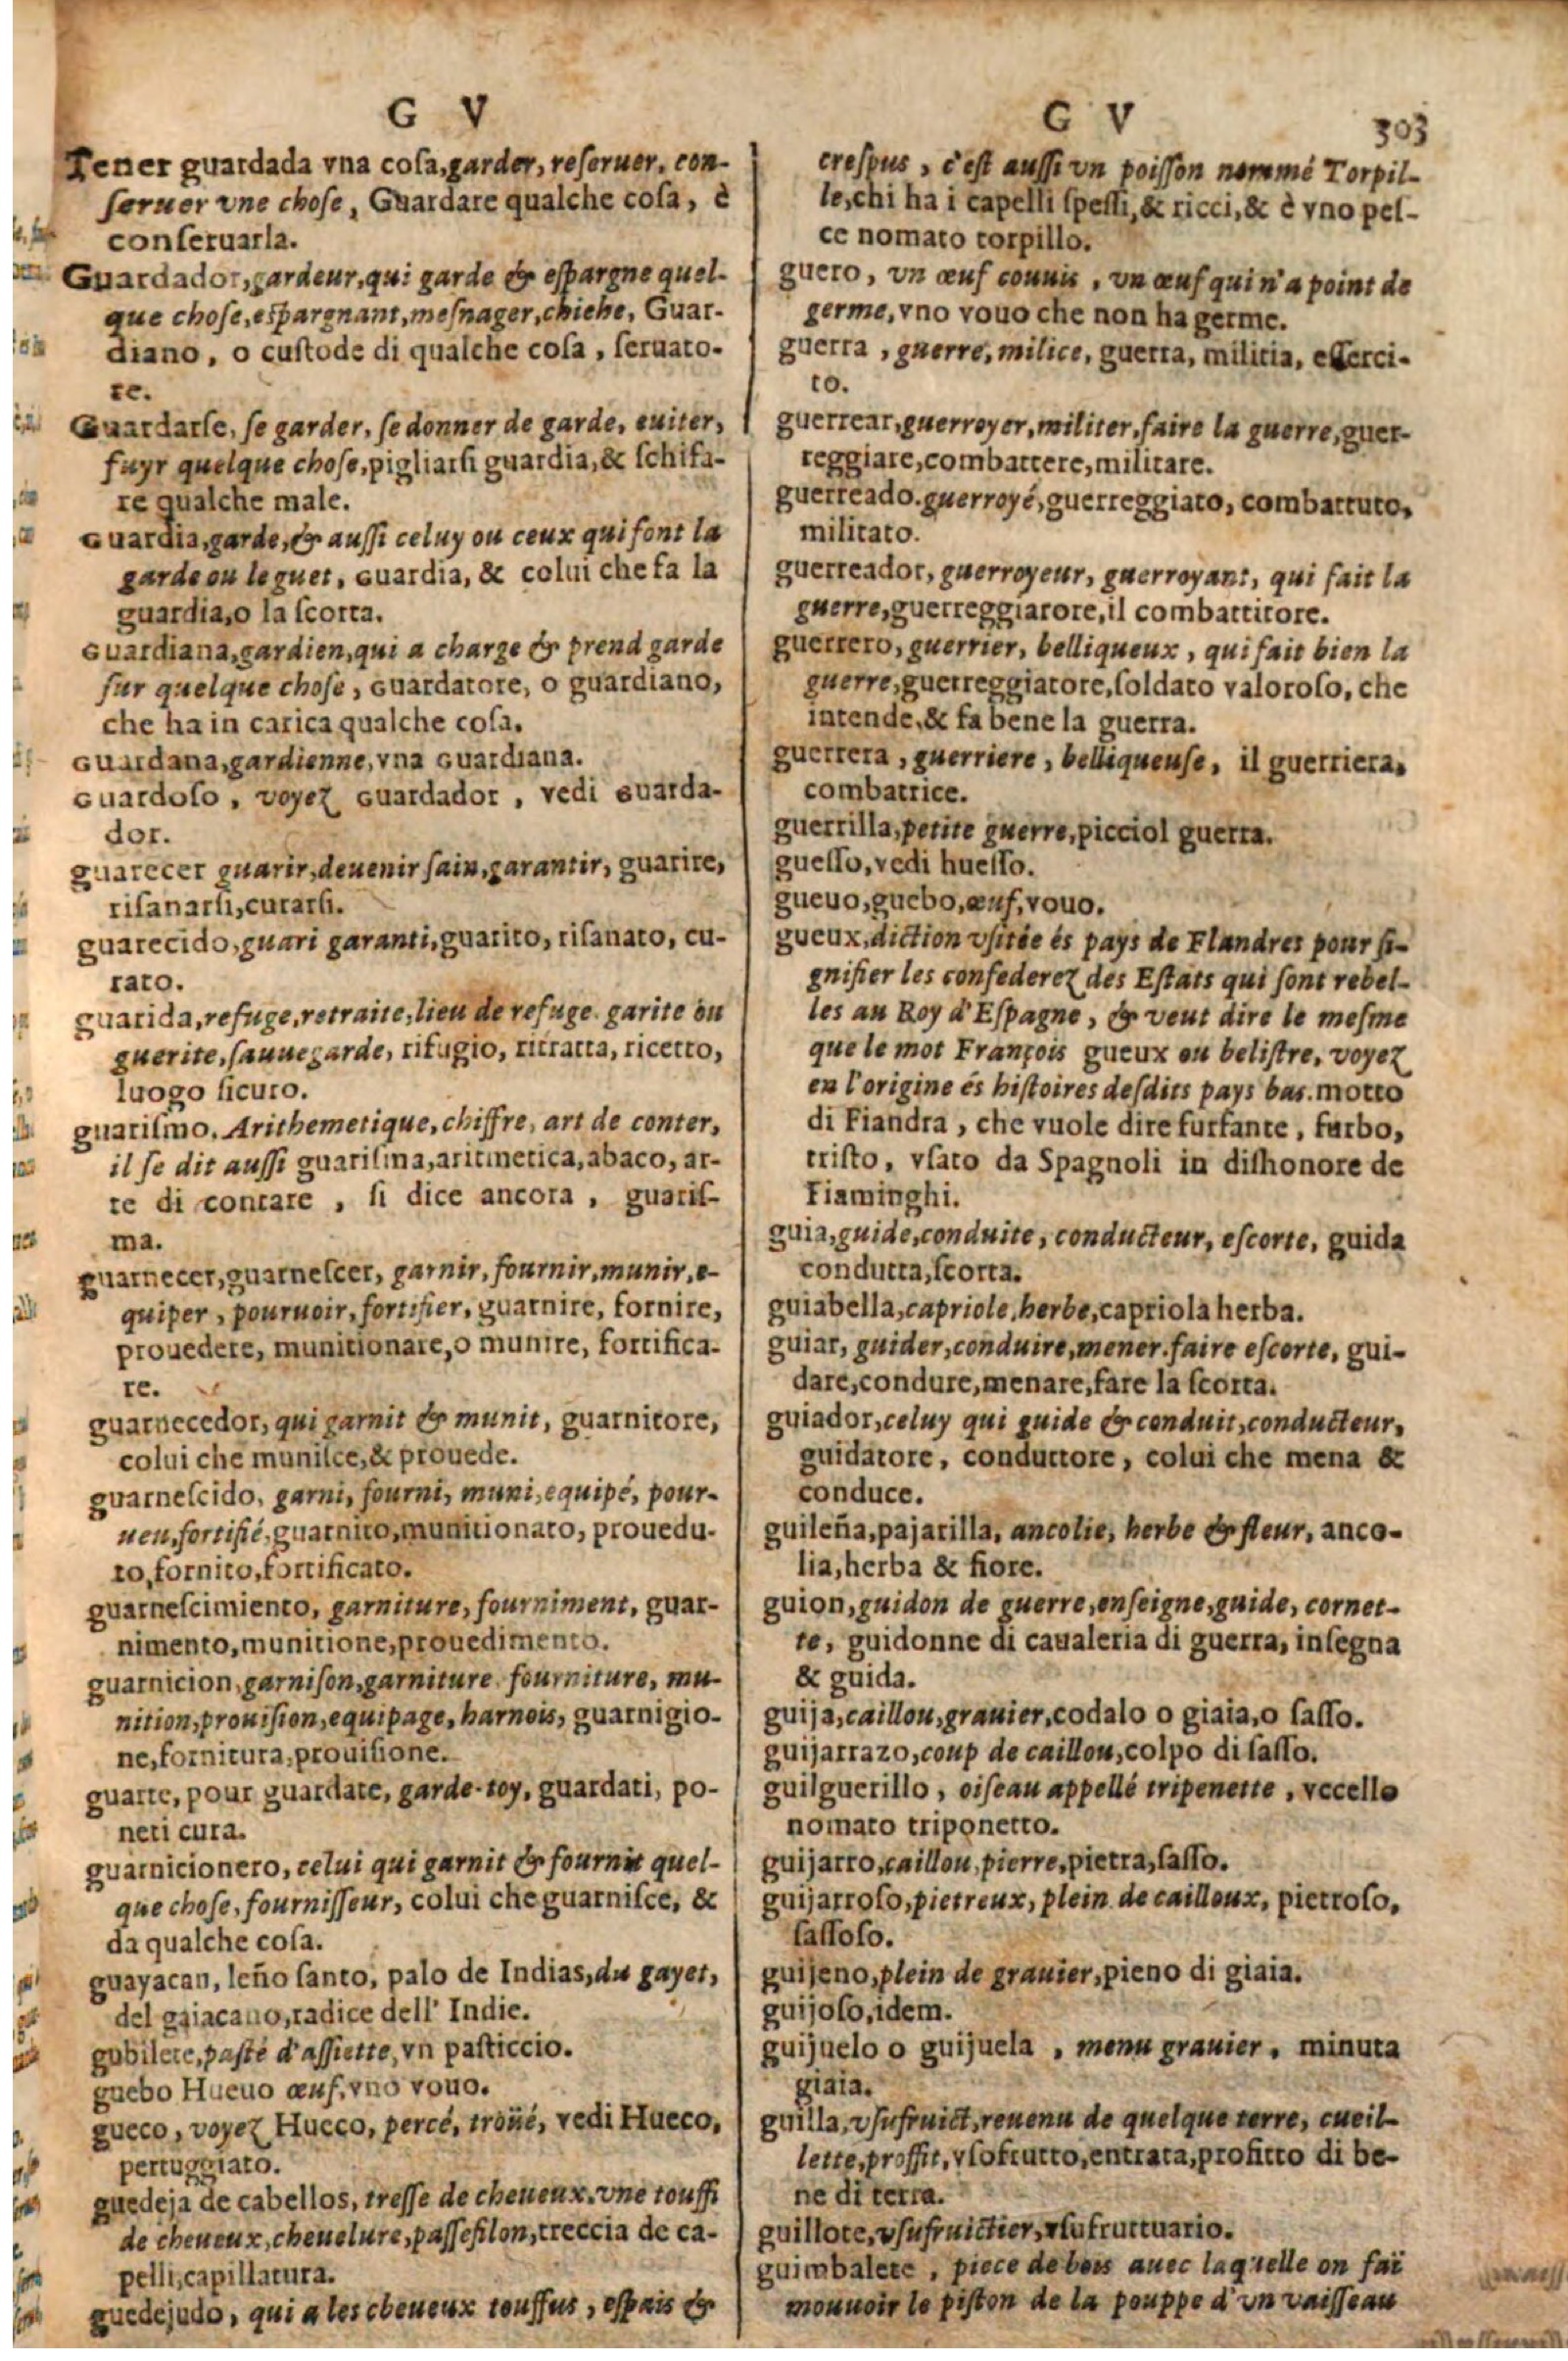 G V
Tener guardada vna cosa, garder, reseruer, con-
seruer vne chose, Guardare qualche cosa, è
conseruarla.
Guardador, gardeur, qui garde & espargne quel-
que chose, espargnant, mesnager, chiche, Guar-
diano, o custode di qualche cosa, seruato-
re.
Guardarse, se garder, se donner de garde, euiter,
fuyr quelque chose, pigliarsi guardia, & schifa-
re qualche male.
Guardia, garde, & aussi celuy ou ceux qui font la
garde ou le guet, Guardia, & colui che fa la
guardia, o la scorta.
Guardiana, gardien, qui a charge & prend garde
sur quelque chose, Guardatore, o guardiano,
che ha in carica qualche cosa.
Guardana, gardienne, vna Guardiana.
Guardoso, voyez Guardador, vedi Guarda-
dor.
guarecer guarir, deuenir sain, garantir, guarire,
risanarsi, curarsi.
guarecido, guari garanti, guarito, risanato, cu-
rato.
guarida, refuge, retraite, lieu de refuge. garite ou
guerite, sauuegarde, rifugio, ritratta, ricetto,
luogo sicuro.
guarismo, Arithemetique, chiffre, art de conter,
il se dit aussi guarisma, aritmetica, abaco, ar-
te di contare, si dice ancora, guaris-
ma.
guarnecer, guarnescer, garnir, fournir, munir, e-
quiper, pouruoir, fortifier, guarnire, fornire,
prouedere, munitionare, o munire, fortifica-
re.
guarnecedor, qui garnit & munit, guarnitore,
colui che munisce, & prouede.
guarnescido, garni, fourni, muni, equipé, pour-
ueu, fortifié, guarnito, munitionato, prouedu-
to, fornito, fortificato.
guarnescimiento, garniture, fourniment, guar-
nimento, munitione, prouedimento.
guarnicion, garnison, garniture fourniture, mu-
nition, prouision, equipage, harnois, guarnigio-
ne, fornitura, prouisione.
guarte, pour guardate, garde-toy, guardati, po-
neti cura.
guarnicionero, celui qui garnit & fournit quel-
que chose, fournisseur, colui che guarnisce, &
da qualche cosa.
guayacan, leño santo, palo de Indias, du gayet,
del gaiacano, radice dell' Indie.
gubilete, pasté d'assiette, vn pasticcio.
guebo Hueuo œuf, vno vouo.
gueco, voyez Hueco, percé, troüé, vedi Hueco,
pertuggiato.
guedeja de cabellos, tresse de cheueux, vne touffi
de cheueux, cheuelure, passefilon, treccia de ca-
pelli, capillatura.
guedejudo, qui a les cheueux touffus, espais &
G V 303
crespus, c'est aussi vn poisson nommé Torpil-
le, chi ha i capelli spessi, & ricci, & è vno pes-
ce nomato torpillo.
guero, vn œuf couuis, vn œuf qui n'a point de
germe, vno vouo che non ha germe.
guerra, guerre, milice, guerra, militia, esserci-
to.
guerrear, guerroyer, militer, faire la guerre, guer-
reggiare, combattere, militare.
guerreado. guerroyé, guerreggiato, combattuto,
militato.
guerreador, guerroyeur, guerroyant, qui fait la
guerre, guerreggiatore, il combattitore.
guerrero, guerrier, belliqueux, qui fait bien la
guerre, guerreggiatore, soldato valoroso, che
intende, & fa bene la guerra.
guerrera, guerriere, belliqueuse, il guerriera,
combatrice.
guerrilla, petite guerre, picciol guerra.
guesso, vedi huesso.
gueuo, guebo, œuf, vouo.
gueux, diction vsitée és pays de Flandres pour si-
gnifier les confederez des Estats qui sont rebel-
les au Roy d'Espagne, & veut dire le mesme
que le mot François gueux ou belistre, voyez
en l'origine és histoires desdits pays bas. motto
di Fiandra, che vuole dire furfante, furbo,
tristo, vsato da Spagnoli in dishonore de
Fiaminghi.
guia, guide, conduite, conducteur, escorte, guida
condutta, scorta.
guiabella, capriole, herbe, capriola herba.
guiar, guider, conduire, mener. faire escorte, gui-
dare, condure, menare, fare la scorta.
guiador, celuy qui guide & conduit, conducteur,
guidatore, conduttore, colui che mena &
conduce.
guileña, pajarilla, ancolie, herbe & fleur, anco-
lia, herba & fiore.
guion, guidon de guerre, enseigne, guide, cornet-
te, guidonne di caualeria di guerra, insegna
& guida.
guija, caillou, grauier, codalo o giaia, o sasso.
guijarrazo, coup de caillou, colpo di sasso.
guilguerillo, oiseau appellé tripenette, vccello
nomato triponetto.
guijarro, caillou, pierre, pietra, sasso.
guijarroso, pierreux, plein de cailloux, pietroso,
sassoso.
guijeno, plein de grauier, pieno di giaia.
guijoso, idem.
guijuelo o guijuela, menu grauier, minuta
giaia.
guilla, vsufruict, reuenu de quelque terre, cueil-
lette, proffit, vsofrutto, entrata, profitto di be-
ne di terra.
guillote, vsufruictier, vsufruttuario.
guimbalete, piece de bois auec laquelle on fai
mouuoir le piston de la pouppe d'vn vaisseau